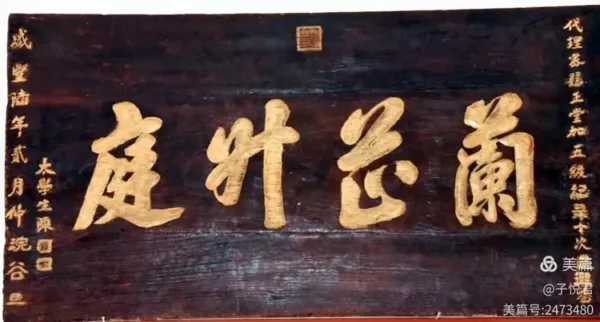 代理
縣正堂加五級紀录十次
蘭芷升庭
太學生陳
咸豐陸年貳月仲浣谷旦
美篇
@子悦君
美篇号:2473480